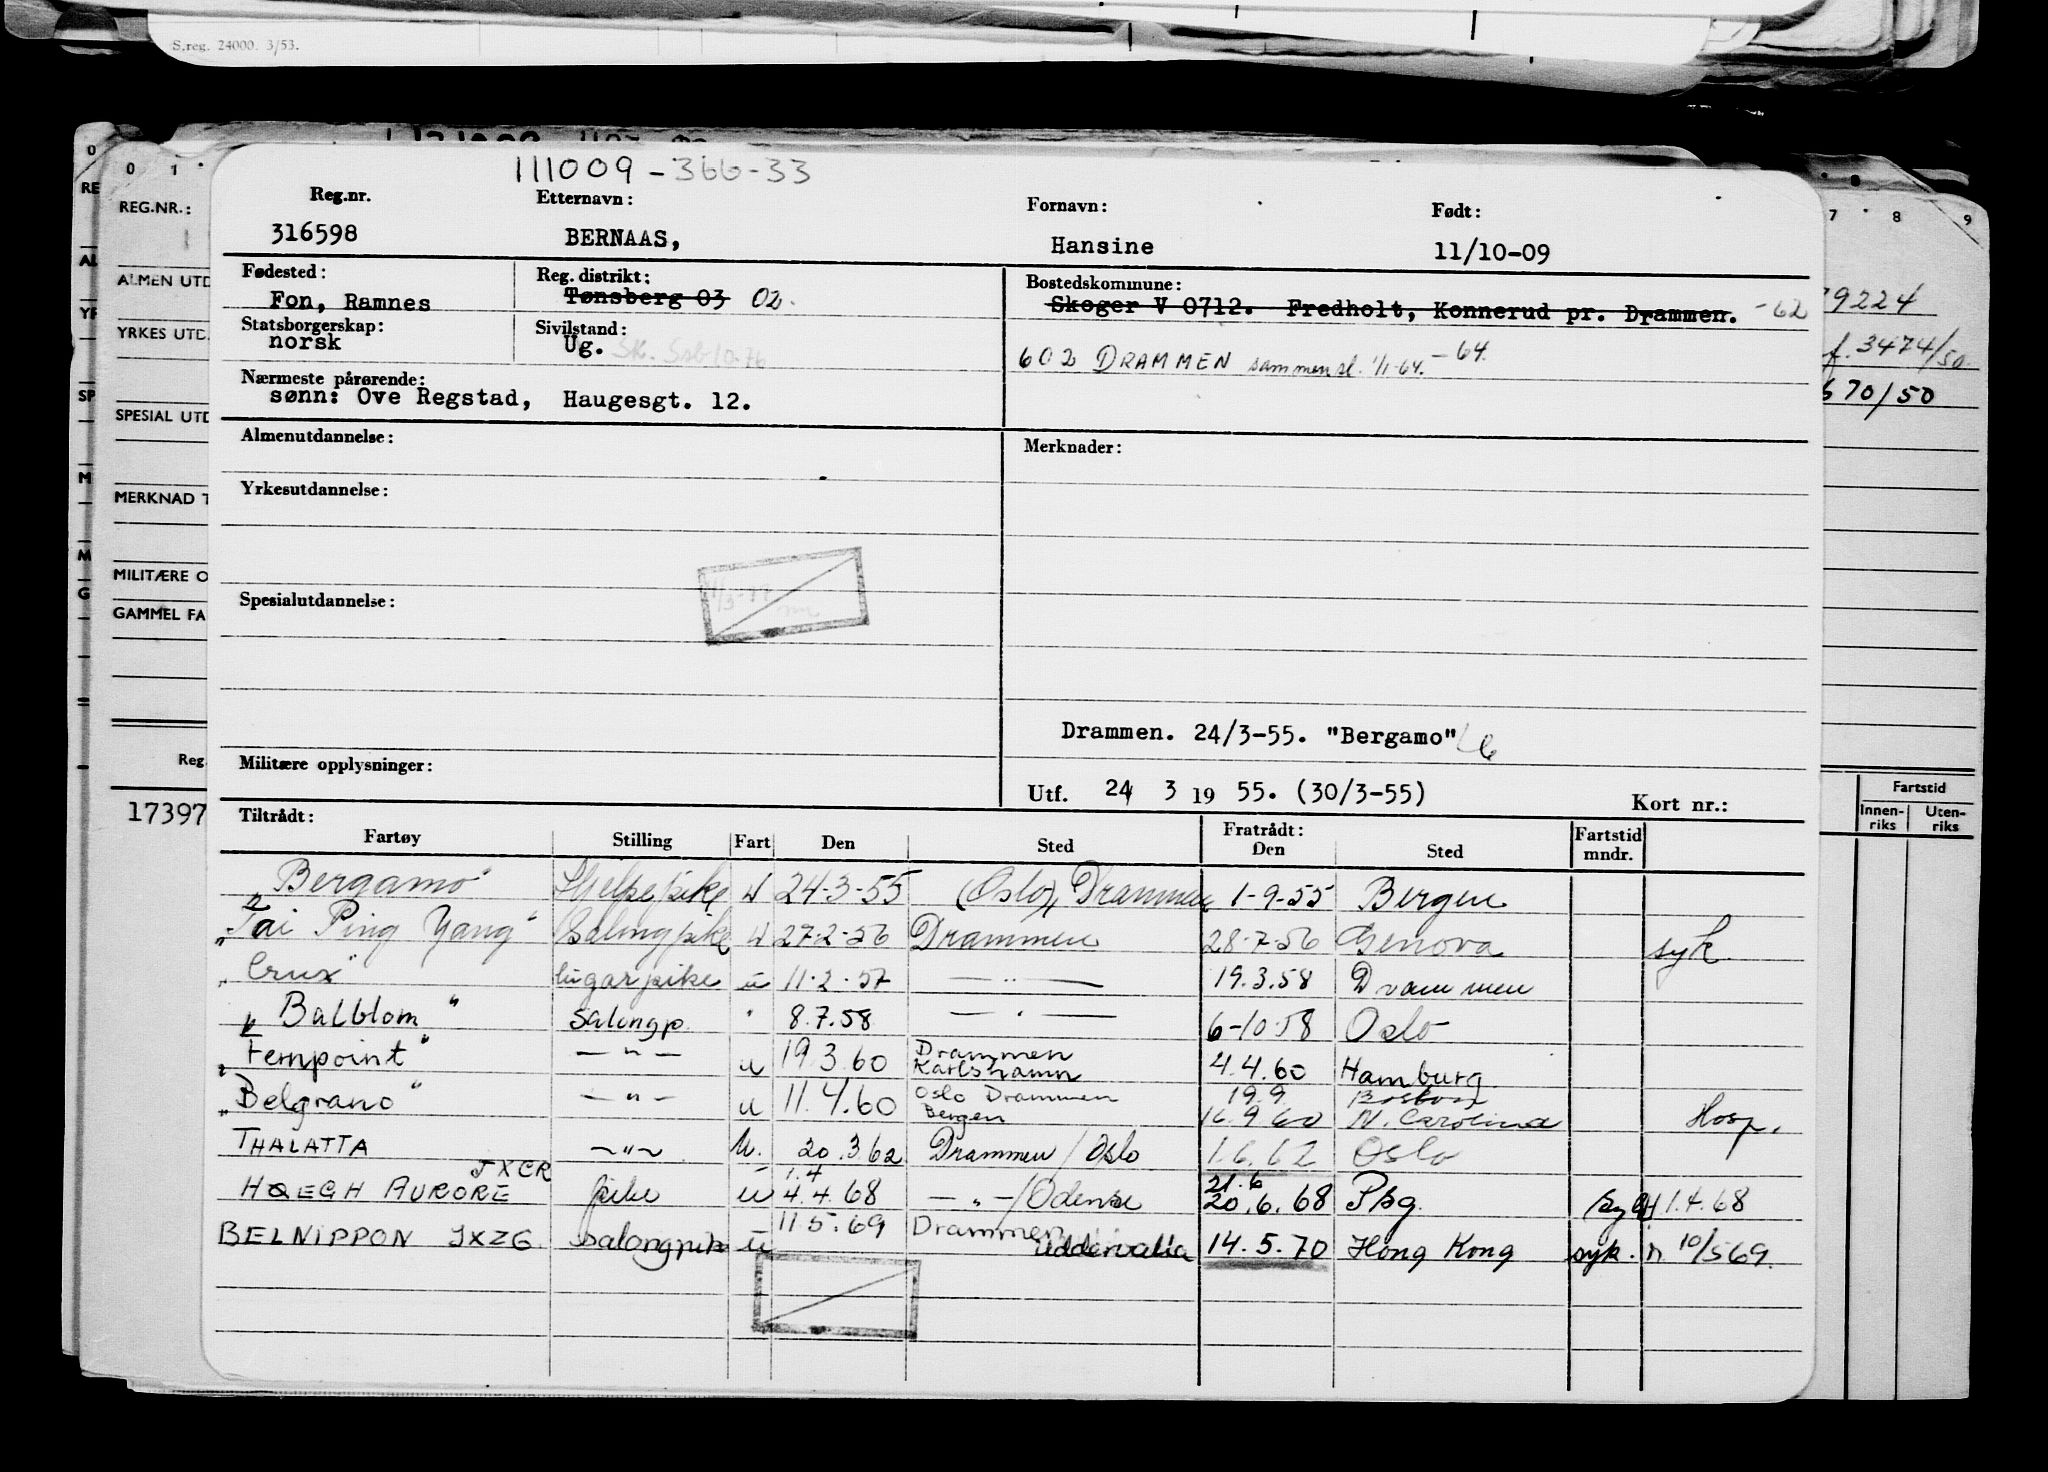 S.reg. 24000. 3/53.
111009-366-33
Reg.nr. Etternavn: Fornavn: Født:
316598 BERNAAS, Hansine 11/10-09
Fødested: Reg. distrikt: Bostedskommune:
Fon, Ramnes Tønsberg 03 02. Skoger V 0712. Fredholt, Konnerud pr. Drammen. -62
Statsborgerskap: Sivilstand:
norsk Ug.
602 DRAMMEN sammensl. 1/1-64. -64.
Nærmeste pårørende:
sønn: Ove Regstad, Haugesgt. 12.
Almenutdannelse: Merknader:
Yrkesutdannelse:
Spesialutdannelse:
Drammen. 24/3-55. "Bergamo"
Militære opplysninger:
Utf. 24 3 19 55. (30/3-55) Kort nr.:
Tiltrådt: Fratrådt:
Fartøy Stilling Fart Den Sted Den Sted Fartstid mndr.
"Bergamo" Hjelpepike u 24-3-55 (Oslo), Drammen 1-9-55 Bergen
"Tai Ping Yang" Salongpike u 27-2-56 Drammen 28-7-56 Genova syk
"Crux" lugarpike u 11-2-57 — " — 19.3.58 Drammen
"Balblom" Salongp. " 8.7.58 — " — 6-10-58 Oslo
"Fernpoint" — " — u 19.3.60 Drammen Karlshamn 4.4.60 Hamburg
"Belgrano" — " — u 11.4.60 Oslo Drammen Bergen 19.9 Boston 16.9.60 N. Carolina Hosp.
THALATTA — " — u. 20.3.62 Drammen / Oslo 1.6.62 Oslo
JXCR
HØEGH AURORE pike u 1.4 4.4.68 — " — / Odense 21.6 20.6.68 Pbg. 1.4.68
BELNIPPON JXZG salongpike u 11.5.69 Drammen Uddevalla 14.5.70 Hong Kong syk. n. 10/5 69.
0 1 7 8 9
REG.NR.:
ALMEN UTD
YRKES UTD.
SPESIAL UTD
MERKNAD T
MILITÆRE O
GAMMEL FA
Reg.
17397
79224
f. 3474/50.
670/50
Fartstid
Innenriks Utenriks